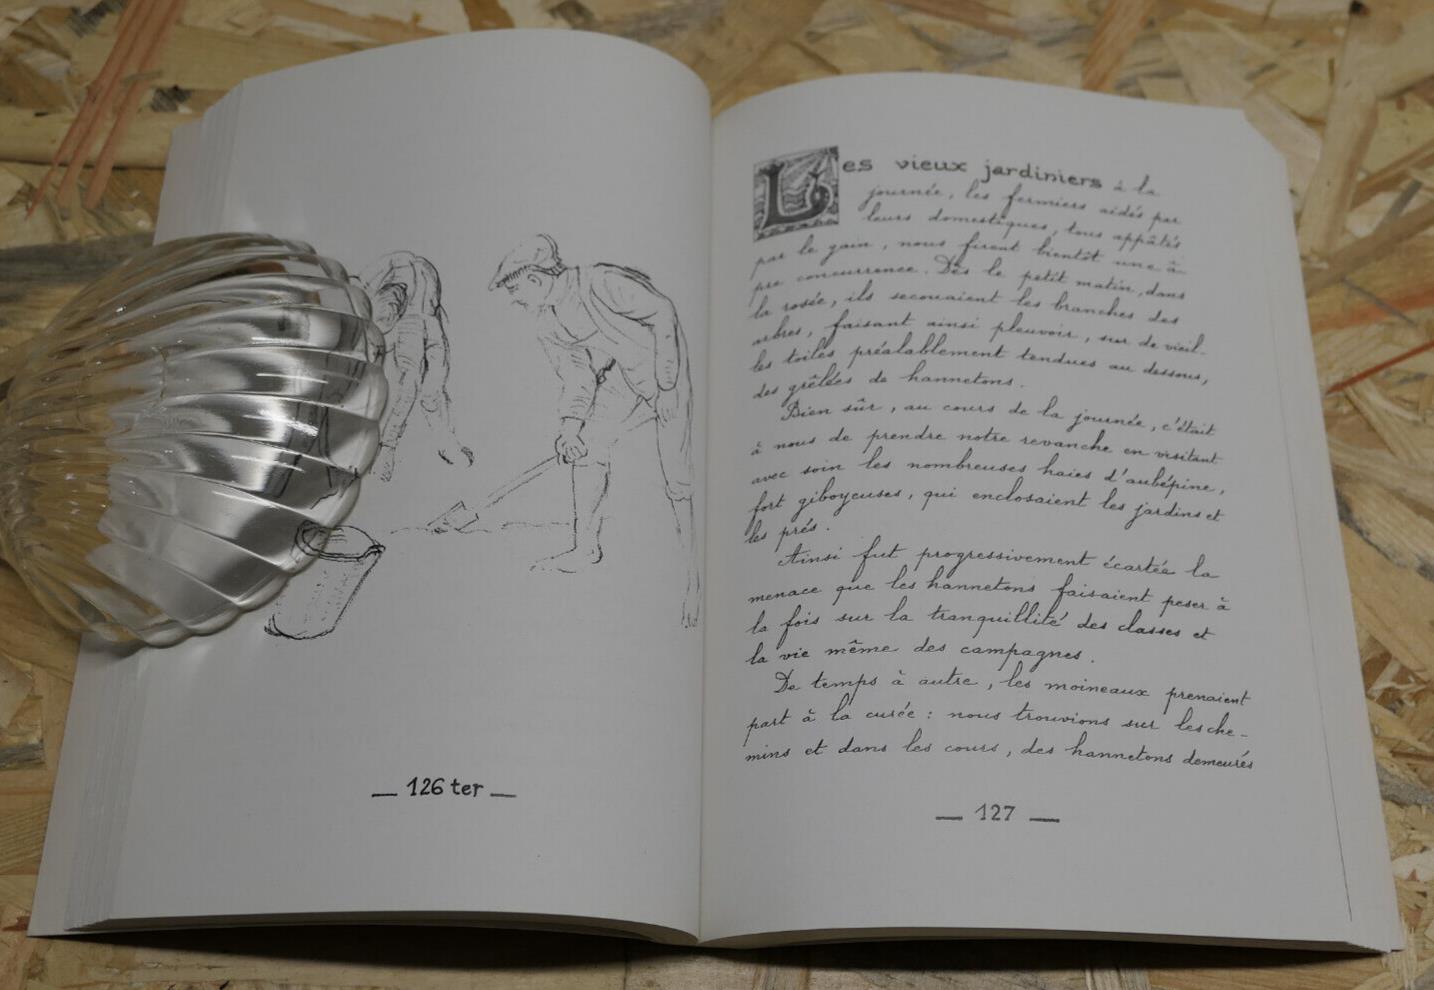 — 126 ter —
Les vieux jardiniers à la
journée, les fermiers aidés par
leurs domestiques, tous appâtés
par le gain, nous firent bientôt une â-
pre concurrence. Dès le petit matin, dans
la rosée, ils secouaient les branches des
arbres, faisant ainsi pleuvoir, sur de vieil-
les toiles préalablement tendues au dessous,
des grêlées de hannetons.
Bien sûr, au cours de la journée, c'était
à nous de prendre notre revanche en visitant
avec soin les nombreuses haies d'aubépine,
fort giboyeuses, qui enclosaient les jardins et
les prés.
Ainsi fut progressivement écartée la
menace que les hannetons faisaient peser à
la fois sur la tranquillité des classes et
la vie même des campagnes.
De temps à autre, les moineaux prenaient
part à la curée : nous trouvions sur les che-
mins et dans les cours, des hannetons demeurés
— 127 —